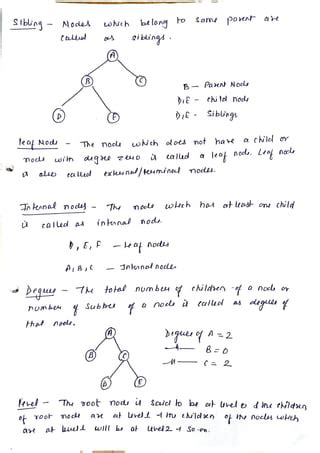 Sibling - Nodes which belong to same parent are
called as siblings.
A
B
C
D
E
B - Parent Node
D,E - child node
D,E - Siblings
leaf Node - The node which does not have a child or
node with degree zero is called a leaf node. Leaf node
is also called external/terminal nodes.
Internal nodes - The node which has atleast one child
is called as internal node.
D, E, F - leaf nodes
A, B, C - Internal nodes
Degree - The total number of children of a node or
number of subtree of a node is called as degree of
that node.
A
B
C
D
E
Degree of A = 2
B = 0
C = 2
level - The root node is said to be at level 0 & the children
of root node are at level 1 & the children of the nodes which
are at level 1 will be at level 2 & so on.